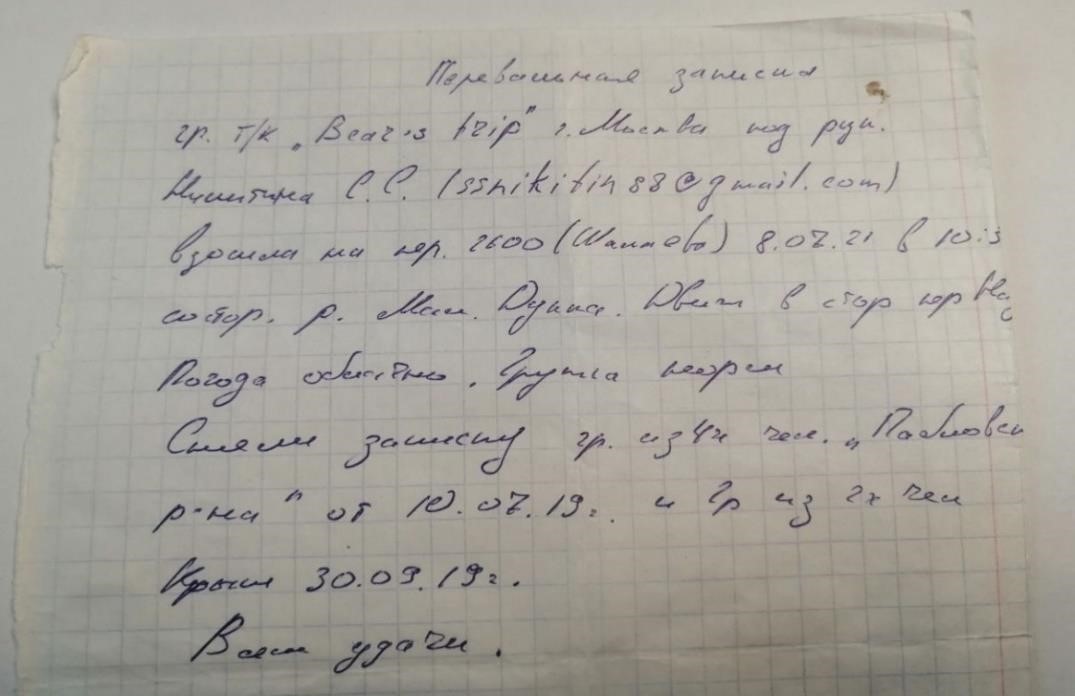 Перевальная записка
гр. т/к „Bear's trip" г. Москва под рук.
Никитина С.С. (ssnikitin88@gmail.com)
взошла на пер. 2600 (Шаллево) 8.07.21 в 10:15
со стор. р. Мал. Дукка. Движ в стор пер
Погода облачно. Группа норм
Сняли записку гр. из 4х чел. „Павловск
р-на" от 10.07.19г. и гр из 2х чел
Крым 30.09.19г.
Всем удачи.